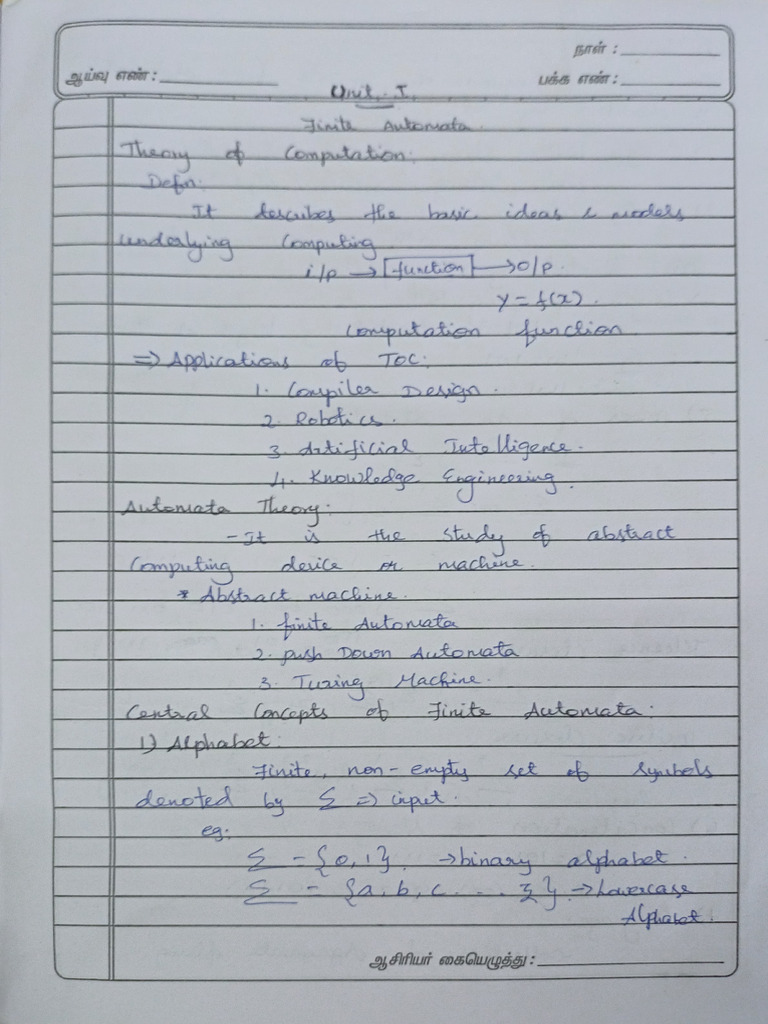 நாள் :
ஆய்வு எண் :
பக்க எண் :
Unit - I
Finite Automata
Theory of Computation:
Defn:
It describes the basic ideas & models
underlying Computing
i/p → [function] → o/p.
y = f(x).
Computation function
⇒ Applications of TOC:
1. Compiler Design.
2. Robotics.
3. Artificial Intelligence.
4. Knowledge Engineering.
Automata Theory:
- It is the study of abstract
Computing device or machine.
* Abstract machine.
1. finite Automata
2. push Down Automata
3. Turing Machine.
Central Concepts of Finite Automata:
1) Alphabet:
Finite, non-empty set of symbols
denoted by Σ ⇒ input.
eg:
Σ = {0, 1}. → binary alphabet.
Σ = {a, b, c .... z}. → Lowercase
Alphabet.
ஆசிரியர் கையெழுத்து :